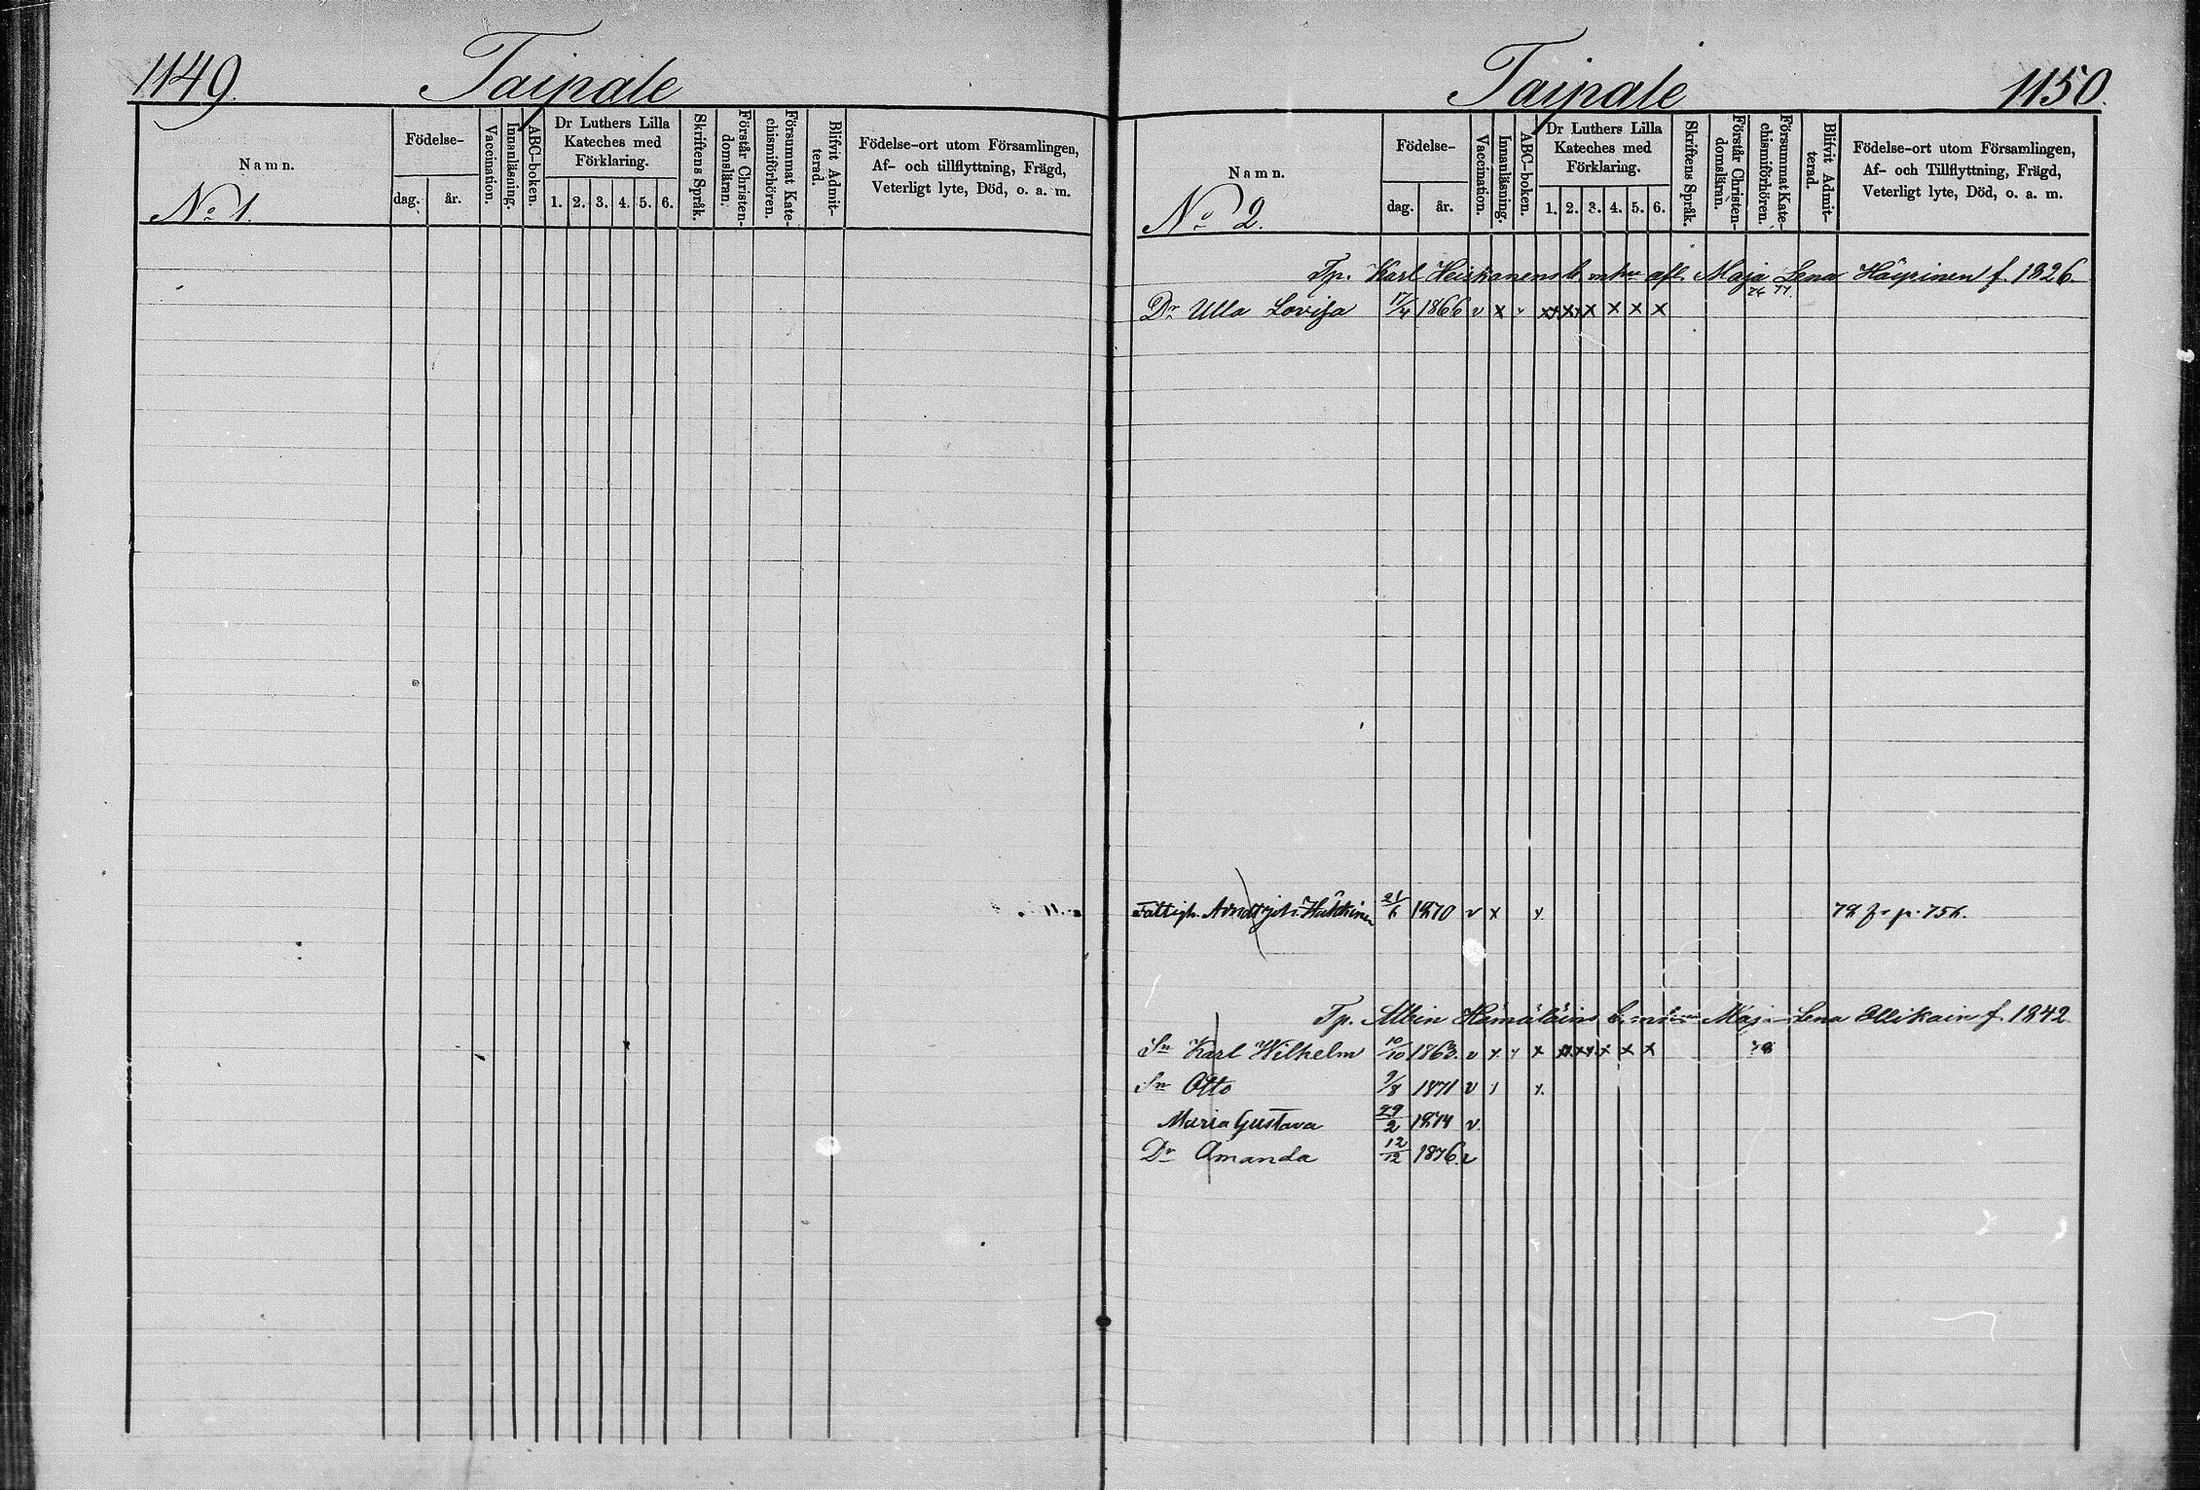 1149. Taipale
Namn.
No 1.
Födelse-
dag. år.
Vaccination.
Innanläsning.
ABC-boken.
Dr Luthers Lilla
Kateches med
Förklaring.
1. 2. 3. 4. 5. 6.
Skriftens Språk.
Förstår Christen-
domsläran.
Försummat Kate-
chismiförhören.
Blifvit Admit-
terad.
Födelse-ort utom Församlingen,
Af- och tillflyttning, Frägd,
Veterligt lyte, Död, o. a. m.
Taipale 1150.
Namn.
No 2.
Födelse-
dag. år.
Vaccination.
Innanläsning.
ABC-boken.
Dr Luthers Lilla
Kateches med
Förklaring.
1. 2. 3. 4. 5. 6.
Skriftens Språk.
Förstår Christen-
domsläran.
Försummat Kate-
chismiförhören.
Blifvit Admit-
terad.
Födelse-ort utom Församlingen,
Af- och Tillflyttning, Frägd,
Veterligt lyte, Död, o. a. m.
Tp. Karl Heiskanens afl. Maja Lena Häyrinen f. 1826.
74 77.
Dr Ulla Lovisa 17/4 1866 v x x x x x x x
Fattigh. 21/6 1870 v x x 78 fr p. 756.
Tp. Albin Hämäläins Maja Lena Ollikain f. 1842
Sn Karl Wilhelm 10/10 1863. v x x x x x x x x 78
Sn Otto 9/8 1871 v x x
Maria Gustava 29/2 1874 v.
Dr Amanda 12/12 1876. v